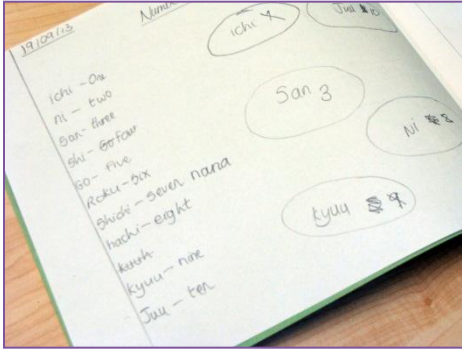 19/09/13
Numbe
ichi - One
ni - two
San - three
Shi - four
Go - five
Roku - six
Shichi - seven nana
hachi - eight
kyuu - nine
Juu - ten
ichi
Juu 10
San 3
Ni
kyuu 9